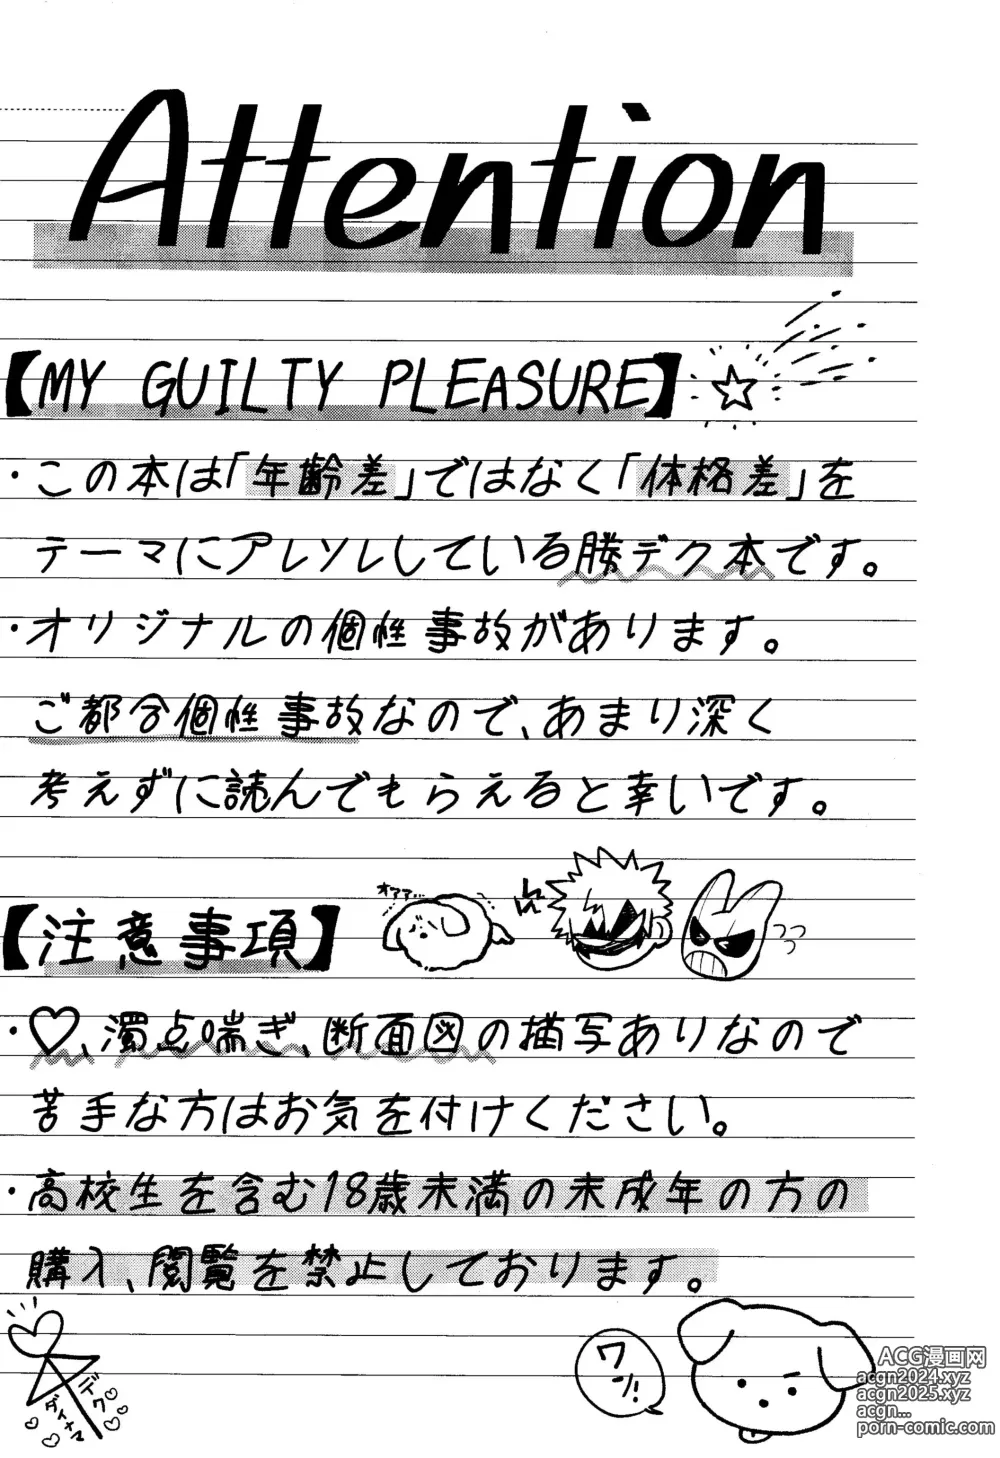 Attention
【MY GUILTY PLEASURE】
・この本は「年齢差」ではなく「体格差」を
テーマにアレソレしている勝デク本です。
・オリジナルの個性事故があります。
ご都合個性事故なので、あまり深く
考えずに読んでもらえると幸いです。
【注意事項】
オアアア…
・♡、濁点喘ぎ、断面図の描写ありなので
苦手な方はお気を付けください。
・高校生を含む18歳未満の未成年の方の
購入、閲覧を禁止しております。
デク
ダイナマ
ワン!
ACG漫画网
acgn2024.xyz
acgn2025.xyz
acgn...
porn-comic.com